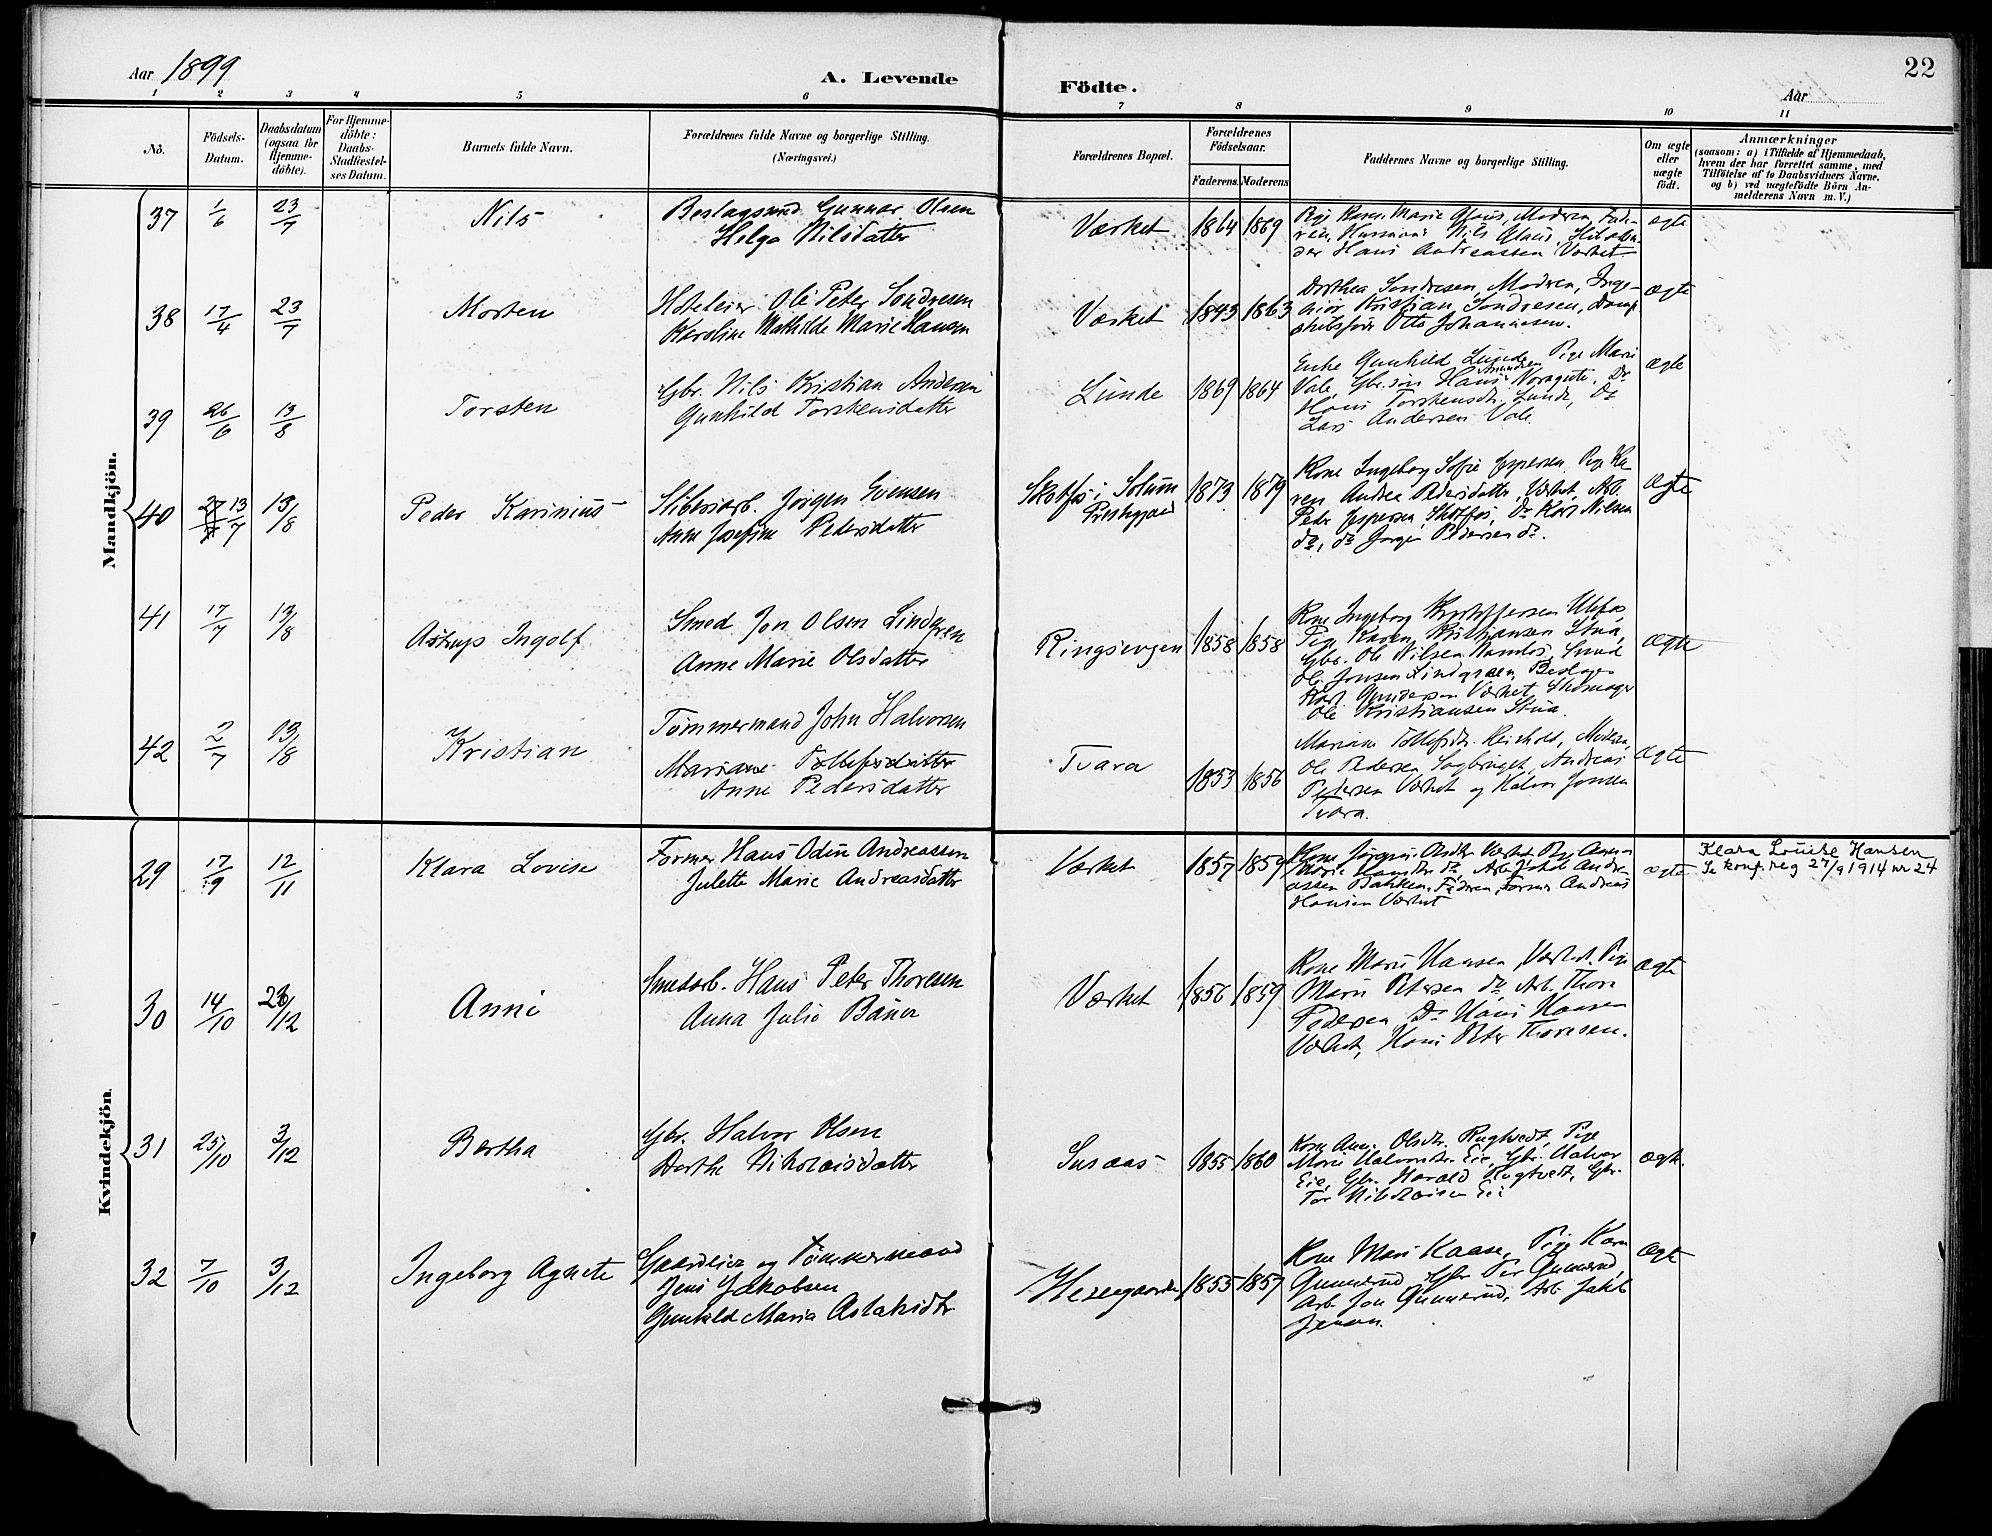 Aar 1899
A. Levende
Födte.
Aar
22
1 2 3 4 5 6 7 8 9 10 11
No.
Födsels-
Datum.
Daabsdatum
(ogsaa for
Hjemme-
döbte).
For Hjemme-
döbte:
Daabs-
Stadfæstel-
ses Datum.
Barnets fulde Navn.
Forældrenes fulde Navne og borgerlige Stilling.
(Næringsvei.)
Forældrenes Bopæl.
Forældrenes
Födselsaar.
Faderens. Moderens
Faddernes Navne og borgerlige Stilling.
Om ægte
eller
uægte
födt.
Anmærkninger
(saasom: a) i Tilfælde af Hjemmedaab,
hvem der har forrettet samme, med
Tilföielse af to Daabsvidners Navne,
og b) ved uægtefödte Börn An-
melderens Navn m. V.)
Mandkjön.
37 1/6 23/7 Nils
Gunnar Olsen
Helga Nilsdatter
Værket 1864 1869
Hans Andreassen Værket
ægte
38 17/4 23/7 Morten
Hoteleier Ole Peter Sondresen
Karoline Mathilde Marie Hansen
Værket 1843 1863
Dorthea Sondresen, Modren, Inge-
niör Kristian Sondresen, Damp
skibsförer Otto Johannesen.
ægte
39 26/6 13/8 Torsten
Gbr. Nils Kristian Andersen
Gunhild Torstensdatter
Lunde 1869 1864
Enke Gunhild Lunde, Pige Marie
Vale, Gbr.sön Hans Amundsen Noragute, Do
Hans Torstensdtr. Lunde, Do
Lars Andersen Vale.
ægte
40 13/7 13/8 Peder Karinius
Slibesiarb. Jörgen Evensen
Anne Josefine Pedersdatter
Skotfos i Solum
Prestegjæld
1873 1879
Kone Ingeborg Sofie Jespersen Pige Ka-
ren Andrea Pedersdatter, Værket, Arb.
Peder Jespersen, Skotfos, Do Karl Nilsen
do, do Jörgen Pedersen do.
ægte
41 17/7 13/8 Astrup Ingolf
Smed Jon Olsen Lindgren
Anne Marie Olsdatter
Ringsevjen 1858 1858
Kone Ingeborg Kristoffersen Ulefos
Pige Karen Kristiansen Stua,
Gbr. Ole Nilsen Smed
Ole Jonsen Lindgren,
Karl Gundersen Værket, Skomager
Ole Kristiansen Stua.
ægte
42 2/7 13/8 Kristian
Tömmermand John Halvorsen
Mariane Tollefsdatter
Anne Pedersdatter
Tvara 1853 1856
Mariane Tollefsdtr. Reinholt, Modren,
Ole Pedersen Sagbruget, Andreas
Pedersen Værket og Halvor Jonsen
Tvara.
ægte
Kvindekjön.
29 17/9 12/11 Klara Lovise
Former Hans Odin Andreassen
Julette Marie Andreasdatter
Værket 1857 1859
Arb. Jakob Andre-
assen Bakken, Faderen, Former Andreas
Hansen Værket
ægte
Klara Louise Hansen
Se konf. reg 27/9 1914 nr 24
30 14/10 26/12 Anni
Smedarb. Hans Peter Thoresen
Anna Julie
Værket 1856 1859
Kone Marie Hansen Værket. Pige
Marie Petersen do, Arb. Thore
Pedersen Do Hans Hansen
Værket, Hans Peter Thoresen.
ægte
31 25/10 3/12 Bertha
Gbr. Halvor Olsen
Dorthe Nikolaisdatter
Susaas 1855 1860
Kone Anne Olsdtr. Rugtvedt, Pige
Marie Halvorsdtr Eie, Gbr. Halvor
Eie, Gbr. Harald Rugtvedt, Gbr.
Tor Nikolaisen Eie
ægte
32 7/10 3/12 Ingeborg Agnete
Gaardeier og Tömmermand
Jens Jakobsen
Gunhild Maria Aslaksdtr
Heisegaarden 1855 1857
Kone Mari Kaase, Pige Karen
Gunnerud, Gbr Per Gunnerud,
Arb. Jon Gunnerud, Arb Jakob
Jensen.
ægte